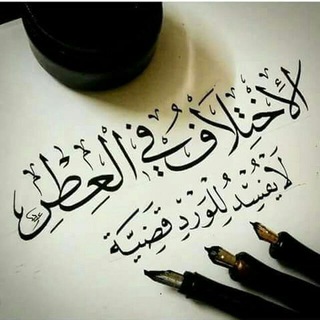 الاختلاف في العطر
لا يفسد للورد قضية